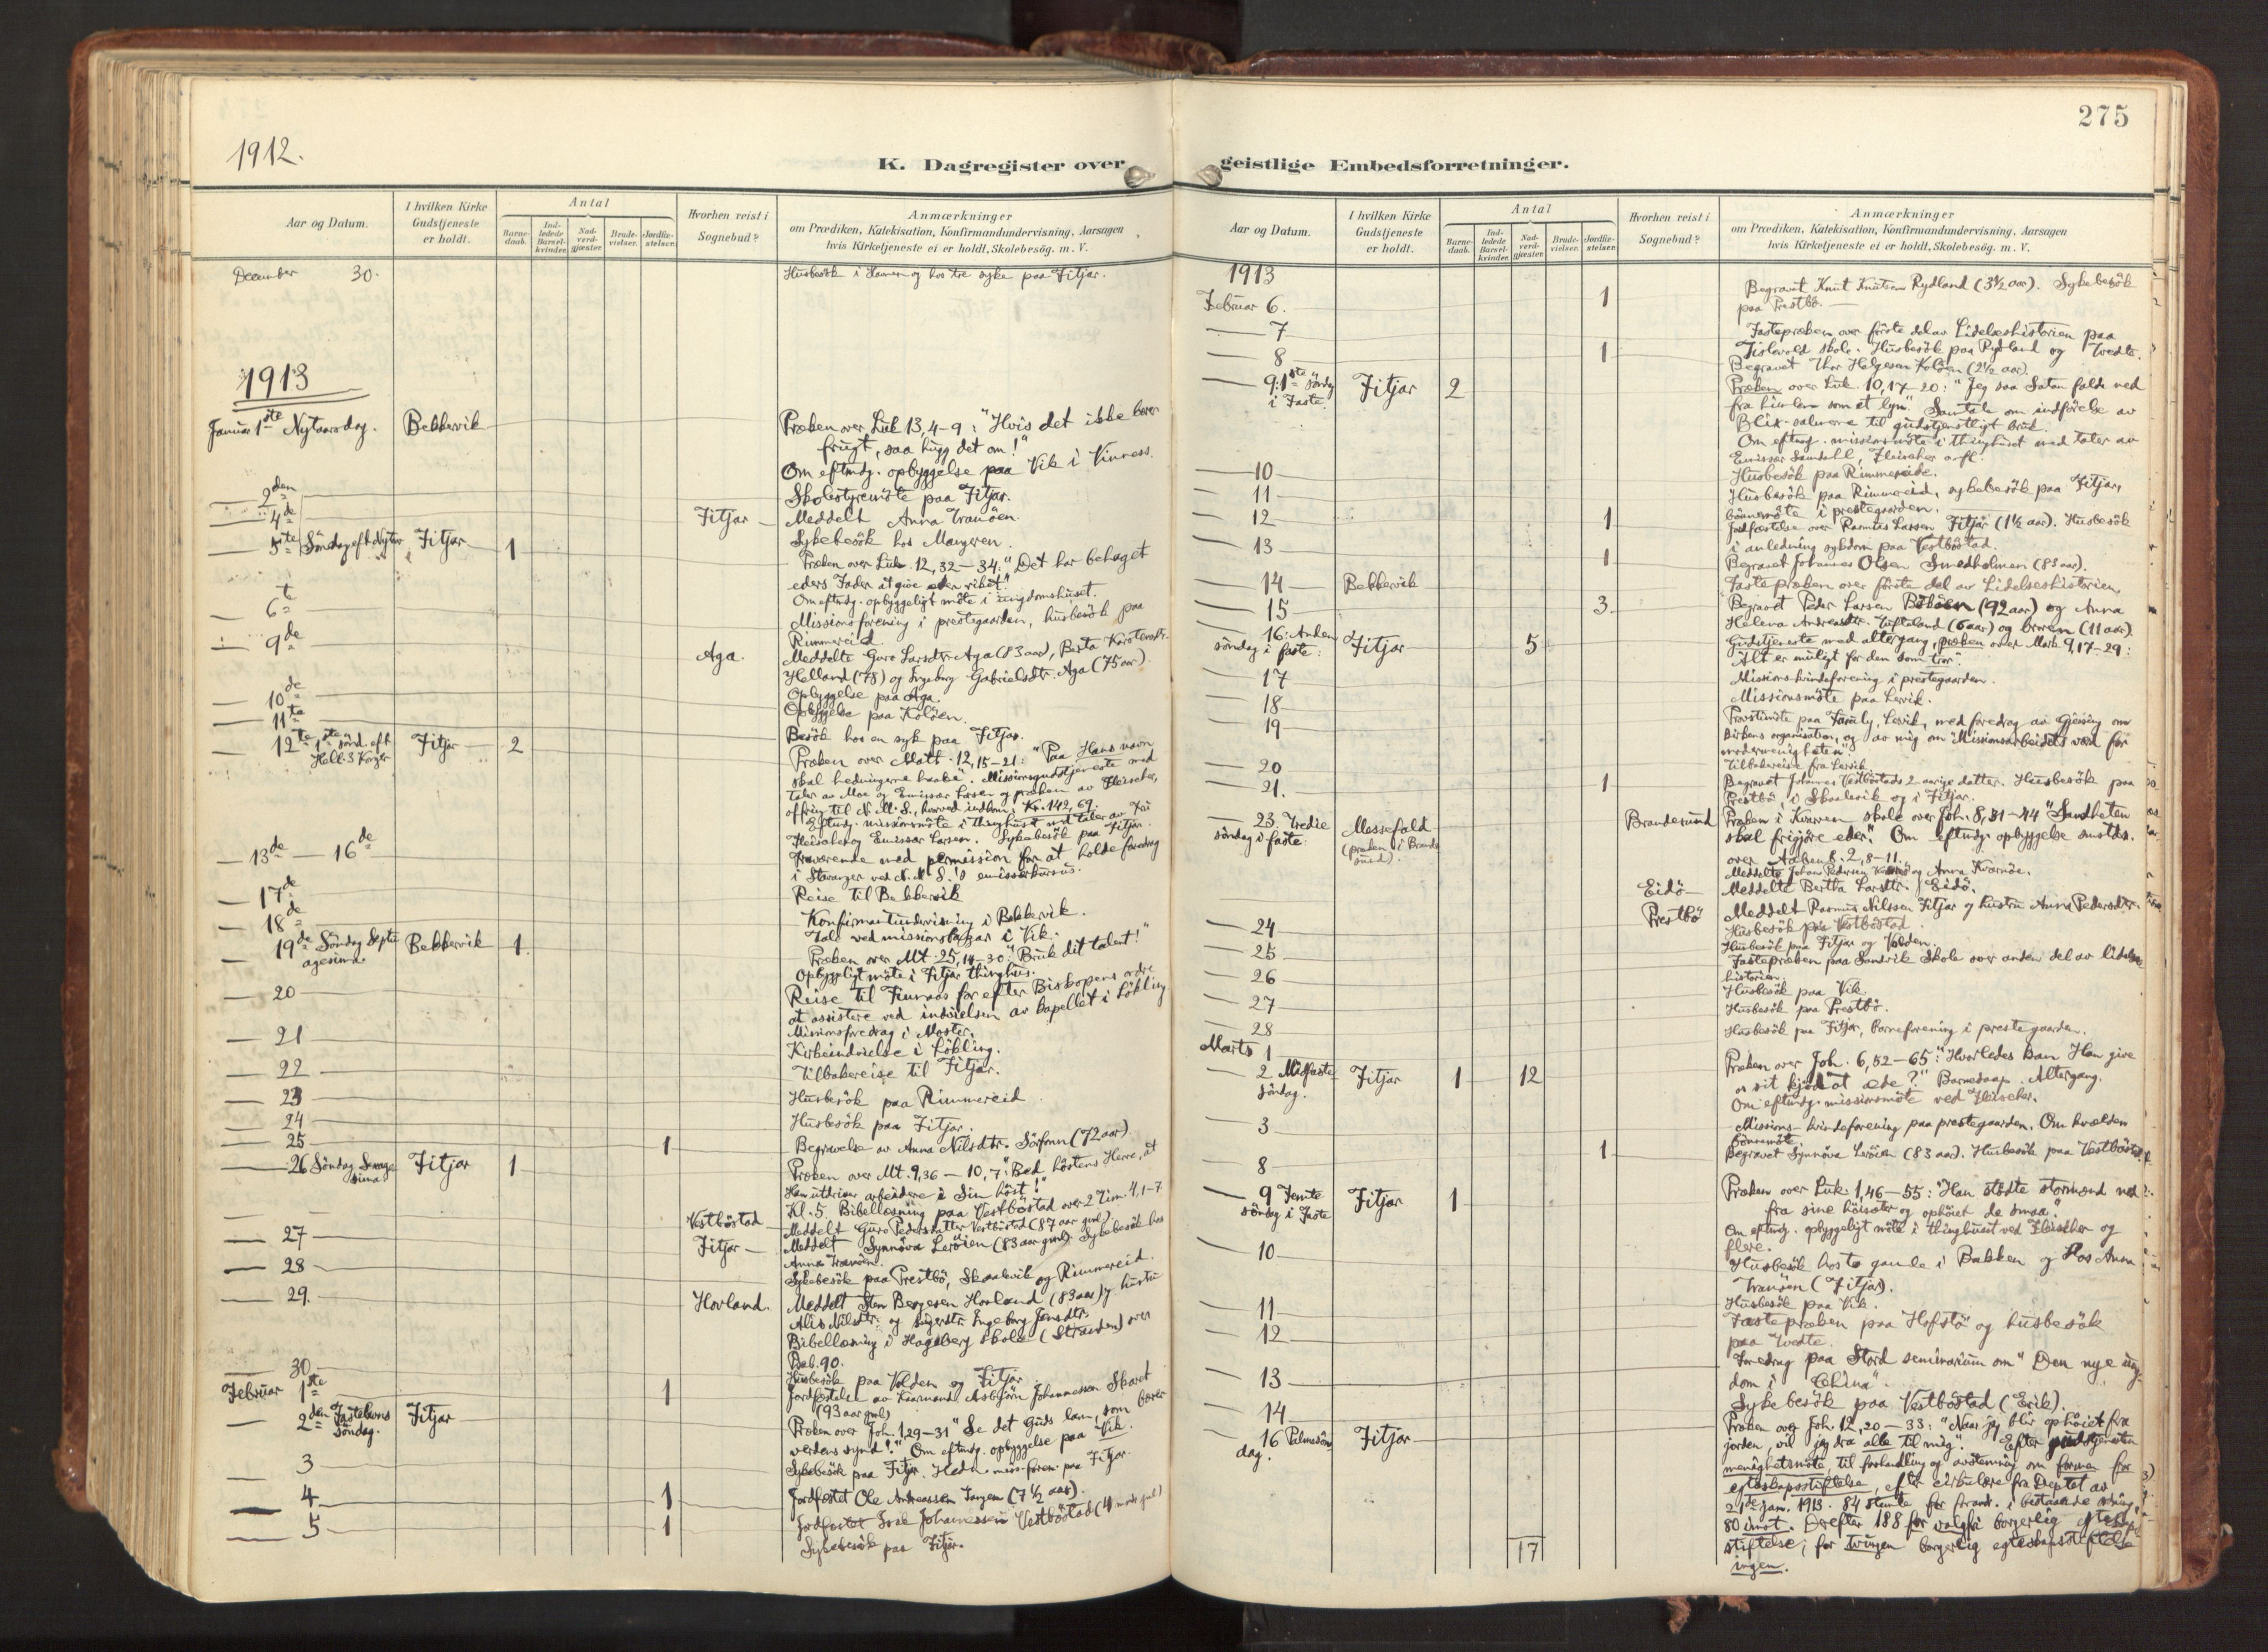 1912.
K. Dagregister over
Aar og Datum.
I hvilken Kirke
Gudstjeneste
er holdt.
Antal
Barne-
daab.
Ind-
ledede
Barsel-
kvinder.
Nad-
verd-
gjæster.
Brude-
vielser.
Jordfæ-
stelser.
Hvorhen reist i
Sognebud?
Anmærkninger
om Prædiken, Katekisation, Konfirmandundervisning, Aarsagen
hvis Kirketjeneste ei er holdt, Skolebesög. m. V.
December 30.
Husbesök i Havnen og hos tre syke paa Fitjar.
1913
Januar 1ste Nytaarsdag.
Bekkervik
Præken over Luk 13, 4-9: "Hvis det ikke bærer
frugt, saa hugg det om!"
Om eftmdg. opbyggelse paa Vik i
2den
Skolestyremöte paa Fitjar.
4de
Fitjar
Meddelt Anna Tranöen.
Sykebesök hos
5te Söndag eft Nytaar
Fitjar
1
Præken over Luk. 12, 32-34: "Det har behaget
eders Fader at give eder riket."
Om eftmdg. opbyggeligt möte i ungdomshuset.
6te
Missionsforening i prestegaarden, husbesök paa
Rimmereid
9de
Aga.
Meddelte Guro Larsdtr. Aga (83 aar), Berta Karstensdtr.
Helland (78) og Ingeborg Gabrielsdtr. Aga (75 aar).
Opbyggelse paa Aga.
10de
Opbyggelse paa Koløen.
11te
Besök hos en syk paa Fitjar.
12te 1ste sönd. eft
Hell. 3 Konger
Fitjar
2
Præken over Matt. 12, 15-21: "Paa Hans navn
skal hedningerne haabe". Missionsgudstjeneste med
taler av Moe og Emissær Larsen og præken av Fleischer,
offring til N.M.S., hvorved indkom Kr. 142,69.
Eftmdg. missionsmöte i thinghuset med taler av
Fleischer og Emissær Larsen. Sykebesök paa Fitjar.
13de - 16de
Fraværende med permission for at holde foredrag
i Stavanger ved N.M.S.'s emissærkursus.
17de
Reise til Bekkervik
18de
Konfirmantundervisning i Bekkervik.
Tale ved missionsbazar i Vik.
19de Söndag Septu
agesima.
Bekkervik
1
Præken over Mt. 25, 14-30: "Bruk dit talent!"
Opbyggligt möte i Fitjar thinghus.
20
Reise til Finnaas for efter Biskopens ordre
at assistere ved indvielsen av kapellet i Lökling
Missionsforedrag i Moster.
21
Kirkeindvielse i Lökling.
22
Tilbakereise til Fitjar.
23
Husbesök paa Rimmereid
24
Husbesök paa Fitjar.
25
1
Begravelse av Anna Nilsdtr. Sörfonn (72 aar)
26 Söndag Sexage
sima
Fitjar
1
Præken over Mt. 9,36 - 10,7: "Bed höstens Herre, at
Han utdriver arbeidere i Sin höst!"
Kl. 5 Bibellæsning paa Vestböstad over 2 Tim. 4, 1-7
Vestböstad
Meddelt Guro Pedersdatter Vestböstad (87 aar gml)
27
Fitjar
Meddelt Synnöva Leröien (83 aar gml). Sykebesök hos
Anna Tranöen.
28
Sykebesök paa Prestbö, Skaalevik og Rimmereid.
29.
Hovland.
Meddelt Sten Børgesen Hovland (83 aar) og hustru
Alis Nilsdtr. og Ingeborg Jensdtr.
Bibellæsning i Hageberg skole (Stranden) over
30
Husbesök paa Volden og Fitjar
Februar 1ste
1
Jordfæstelse av Kaarmand Asbjörn Johannessen Skaret
(93 aar gml)
2den Fastelavns
söndag.
Fitjar
Præken over Joh. 1, 29-31 "Se det Guds lam, som bærer
verdens synd!" Om eftmdg. opbyggelse paa Vik.
3
Sykebesök paa Fitjar. Hedn. miss.foren. paa Fitjar.
4
1
Jordfæstet Ole Andreassen (7 1/2 aar).
5
1
Jordfæstet Johannessen Vestböstad
Sykebesök paa Fitjar.
275
geistlige Embedsforretninger.
Aar og Datum.
I hvilken Kirke
Gudstjeneste
er holdt.
Antal
Barne-
daab.
Ind-
ledede
Barsel-
kvinder.
Nad-
verd-
gjæster.
Brude-
vielser.
Jordfæ-
stelser.
Hvorhen reist i
Sognebud?
Anmærkninger
om Prædiken, Katekisation, Konfirmandundervisning, Aarsagen
hvis Kirketjeneste ei er holdt, Skolebesög. m. V.
1913
Februar 6.
1
Begravet Knut Knutsen Rydland (3 1/2 aar). Sykebesök
paa Prestbö.
7
Fastepræken over förste del av Lidelseshistorien paa
Tislevold skole. Husbesök paa Rydland og Tvedte.
8
1
Begravet Thor Helgesen Koløen (2 1/2 aar).
9: 1ste söndag
i Faste.
Fitjar
2
Præken over Luk. 10, 17-20: "Jeg saa Satan falde ned
fra himlen som et lyn". Samtale om indförelse av
Blix-salmerne til gudstjenstligt bruk.
Om eftmdg. missionsmöte i thinghuset med taler av
Emissær Sandahl, Fleischer o. fl.
10
Husbesök paa Rimmereide.
11
Husbesök paa Rimmereid, sykebesök paa Fitjar,
bönnemöte i prestegaarden.
12
1
Jordfæstelse over Rasmus Larsen Fitjar (1 1/2 aar). Husbesök
i anledning sykdom paa Vestböstad.
13
1
Begravet Johannes Olsen Smedholmen (83 aar).
14
Bekkervik
Fastepræken over förste del av Lidelseshistorien
15
3
Begravet Peder Larsen (92 aar) og Anna
Helena Andreasdtr. Tufteland (6 aar) og broren (11 aar).
16: Anden
söndag i faste:
Fitjar
5
Gudstjeneste med altergang, præken over Mark 9, 17-29:
"Alt er muligt for den som tror."
17
Missionskvindeforening i prestegaarden.
18
Missionsmöte paa Lervik.
19
Provstimöte paa Family, Lervik, med foredrag av Gjeising om
kirkens organisation, og av mig om "Missionsarbeidets værd for
modermenigheten".
20
Tilbakereise fra Lervik.
21.
1
Begravet Johannes Vestböstads 2-aarige datter. Husbesök paa
Prestbö, i Skaalevik og i Fitjar.
23. Tredie
söndag i faste:
Messefald
(præken i Brande
sund).
Brandesund
Præken i Kvarven skole over Joh. 8, 31-44 "Sandheten
skal frigjöre eder". Om eftmdg. opbyggelse smstds.
over Aabenb. 2, 8-11.
Meddelte Johan Pedersen og Anna Kvarnöe.
Eidö
Meddelte Bertha Larsdtr. Eidö.
Prestbö
Meddelt Rasmus Nilssen Fitjar og hustru Anna Pedersdtr.
24
Husbesök paa Vestböstad
25
Husbesök paa Fitjar og Volden.
26
Fastepræken paa Sandvik Skole over anden del av lidelses
historien.
27
Husbesök paa Vik.
28
Husbesök paa Prestbö.
Marts 1
Husbesök paa Fitjar, barneforening i prestegaarden.
2 Midfaste
söndag.
Fitjar
1
12
Præken over Joh. 6, 52-65: "Hvorledes kan Han give
os sit kjöd at æde?" Barnedaap. Altergang.
Om eftmdg. missionsmöte ved Fleischer.
3
Missions-kvindeforening paa prestegaarden. Om kvælden
bönnemöte.
8
1
Begravet Synnöva Leröien (83 aar). Husbesök paa Vestböstad.
9 Femte
söndag i Faste
Fitjar
1
Præken over Luk. 1, 46-55: "Han stödte stormænd ned
fra sine höisæter og ophöiet de smaa."
Om eftmdg. opbyggeligt möte i thinghuset ved Fleischer og
flere.
10
Husbesök hos to gamle i Bakken og hos Anna
Tranöen (Fitjar).
11
Husbesök paa Vik.
12
Fastepræken paa Hofstö og husbesök
paa Tvedte.
13
Foredrag paa Stord seminarium om "Den nye ung-
dom i China".
14
Sykebesök paa Vestböstad (Erik).
16 Palmesön
dag.
Fitjar
Præken over Joh. 12, 20-33: "Naar jeg blir ophöiet fra
jorden, vil jeg dra alle til mig". Efter gudstjenesten
menighetsmöte til forhandling og avstemning om formen for
egteskapsstiftelse, efter cirkulære fra Deptet av
21de jan. 1913. 84 stemte for forandr. i bestaaende ordning,
80 imot. Derefter 188 for valgfri borgerlig
stiftelse; for tvungen borgerlig egteskapsstiftelse
ingen.
17